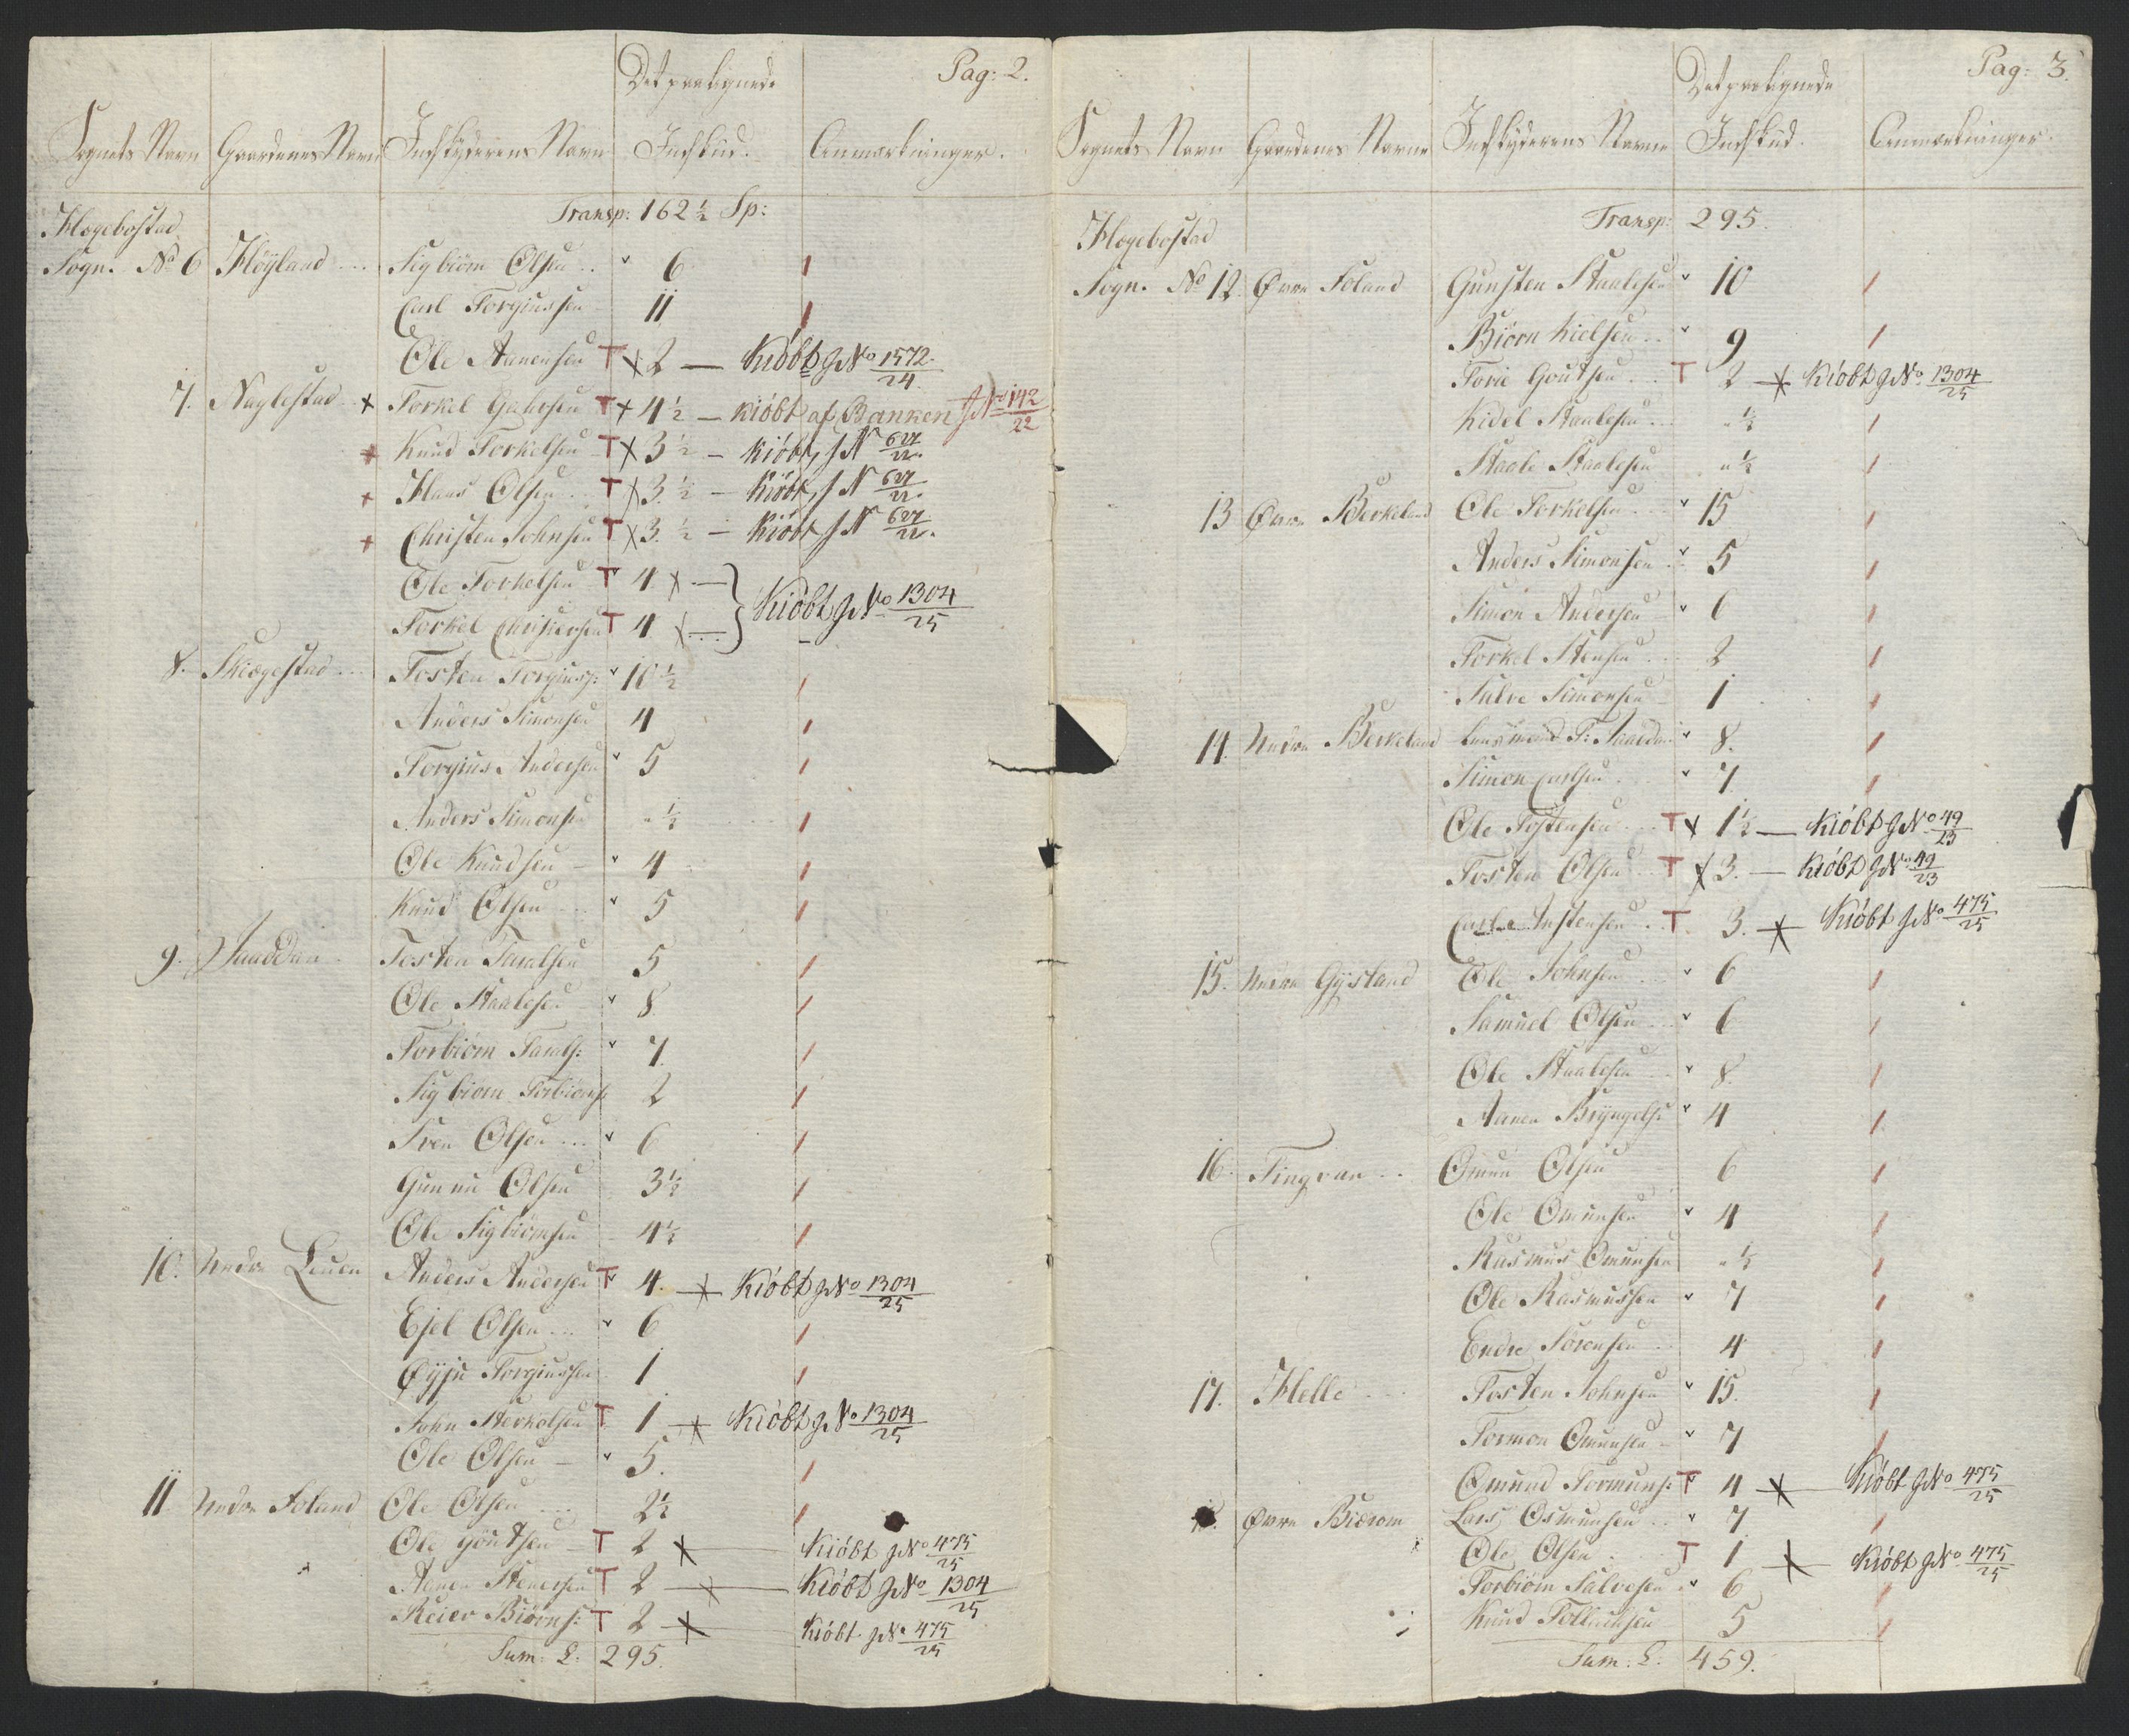 Pag: 2.
Det paalignede
Sognets Navn Gaardenes Navn Indskyderens Navn Indskud. Anmærkninger.
Transp: 162 ½ Sp:
Hægebostad
Sogn. No 6 Höyland ... Sigbiörn Olsen .. 6
Carl Torgiussen 11
Ole Aanensen T x 2 — Kiöbt J No 1572/24.
7. Naglestad x Torkel T x 4 ½ — kiöbt af Banken J No 142/22
Knud Torkelsen T x 3 ½ — kiöbt J N 627/22.
Hans Olsen T x 3 ½ — Kiöbt J N 627/22.
Christen Johnsen T x 3. ½ — Kiöbt J N 627/22.
Ole Torkelsen T 4 x —
Torkel Christensen T 4 x — } Kiöbt J No 1304/25
8. Skiægestad ... Tosten Torgiuss: 10 ½
Anders Simonsen 4
Torgius Andersen 5
Anders Simonsen " ½
Ole Knudsen — 4
Knud Olsen ... 5
9. Tosten Taralsen 5
Ole Staalesen 8
Torbiörn Tarals: 7.
Sigbiörn Torbiörns: 2
Sven Olsen ... 6
Gunnu Olsen 3 ½
Ole Sigbiörnsen 4 ½
10. Nedre Leuen Anders Andersen T 4. x Kiöbt J No 1304/25
Ejel Olsen ... 6
Öyju Torgiussen 1
John Sterkolsen T 1 x Kiöbt J No 1304/25
Ole Olsen — 5.
11 Nedre Foland Ole Olsen ... 2 ½
Ole Goutsen T 2 x Kiöbt J No 475/25
Aanen Stenersen T 2 x Kiöbt J No 1304/25
Reier Biörns: T 2 x Kiöbt J No 475/25
Sum: L: 295.
Pag: 3.
Det paalignede
Sognets Navn Gaardenes Navne Indskyderens Navne Indskud. Anmærkninger.
Transp: 295.
Hægebostad
Sogn. No 12. Övre Foland Gunsten Staalesen 10
Biörn Kielsen .. 9
Torie Goutsen ... T 2 x Kiöbt J No 1304/25
Kidel Staalesen ... " ½
Staale Staalesen " ½
13 Övre Berkeland Ole Torkelsen 15
Anders Simonsen 5
Simon Andersen 6
Torkel Stensen ... 2
Sulve Simonsen 1
14. Nedre Berkeland Lensmand T: 8.
Simon Carlsen 7
Ole Tostensen ... T x 1 ½ — Kiöbt J No 49/23
Tosten Olsen .. T x 3. — Kiöbt J No 49/23
Carl T 3. x Kiöbt J No 475/25
15. Nedre Gysland Ole Johnsen ... 6
Samuel Olsen ... 6
Ole Staalesen .. 8.
Aanen Bryngels: 4
16. Tingvan .. Omun Olsen 6
Ole Omunsen 4
Rasmus Omunsen " ½
Ole Rasmussen 7
Endre Sörensen ... 4
17. Helle ... Tosten Johnsen 15.
Tormon Omunsen — 7
Omund Tormuns: T 4 x Kiöbt J No 475/25
Övre Biærom Lars Osmunsen .. 7
Ole Olsen . T 1 x Kiöbt J No 475/25
Torbiörn Salvesen 6
Knud Tollachsen 5
Sum. L: 459.